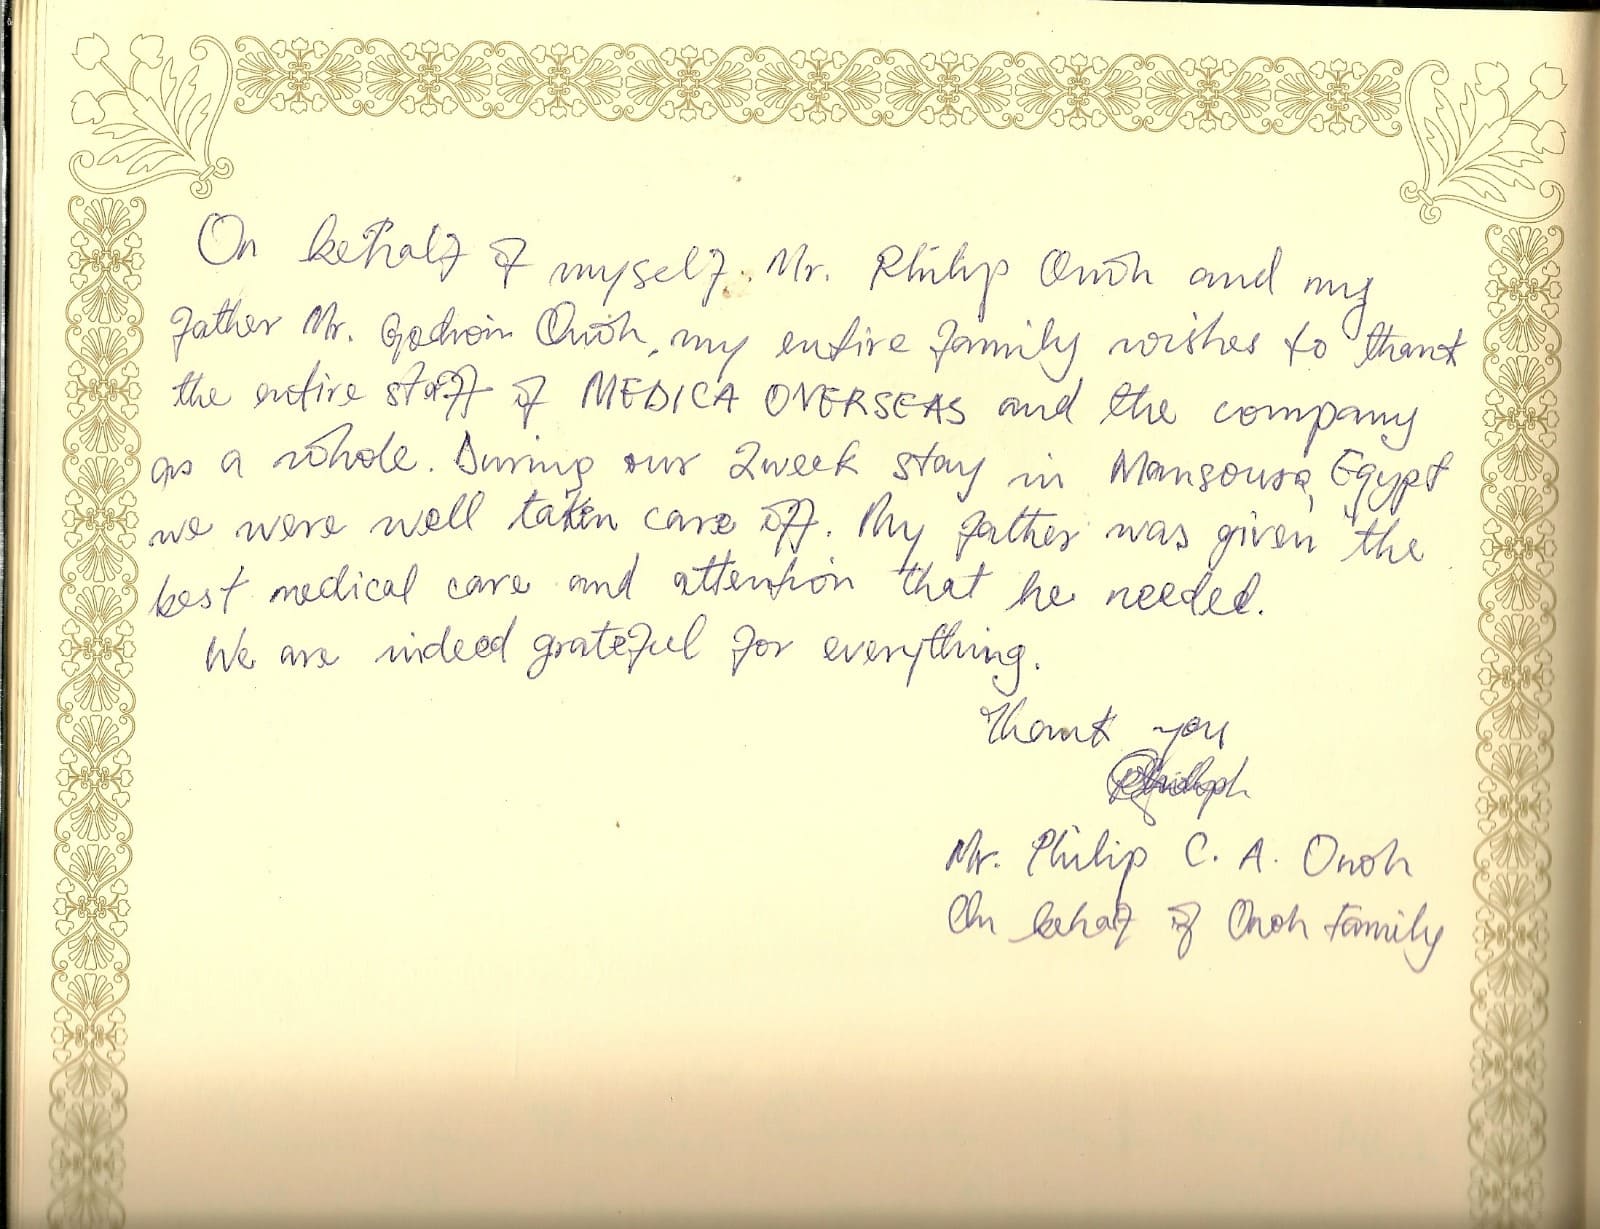 On behalf of myself. Mr. Philip Onoh and my
father Mr. Onoh, my entire family wishes to thank
the entire staff of MEDICA OVERSEAS and the company
as a whole. During our 2week stay in Mansoura, Egypt
we were well taken care off. My father was given the
best medical care and attention that he needed.
We are indeed grateful for everything.
Thank you
Mr. Philip C. A. Onoh
On behaf of Onoh Family